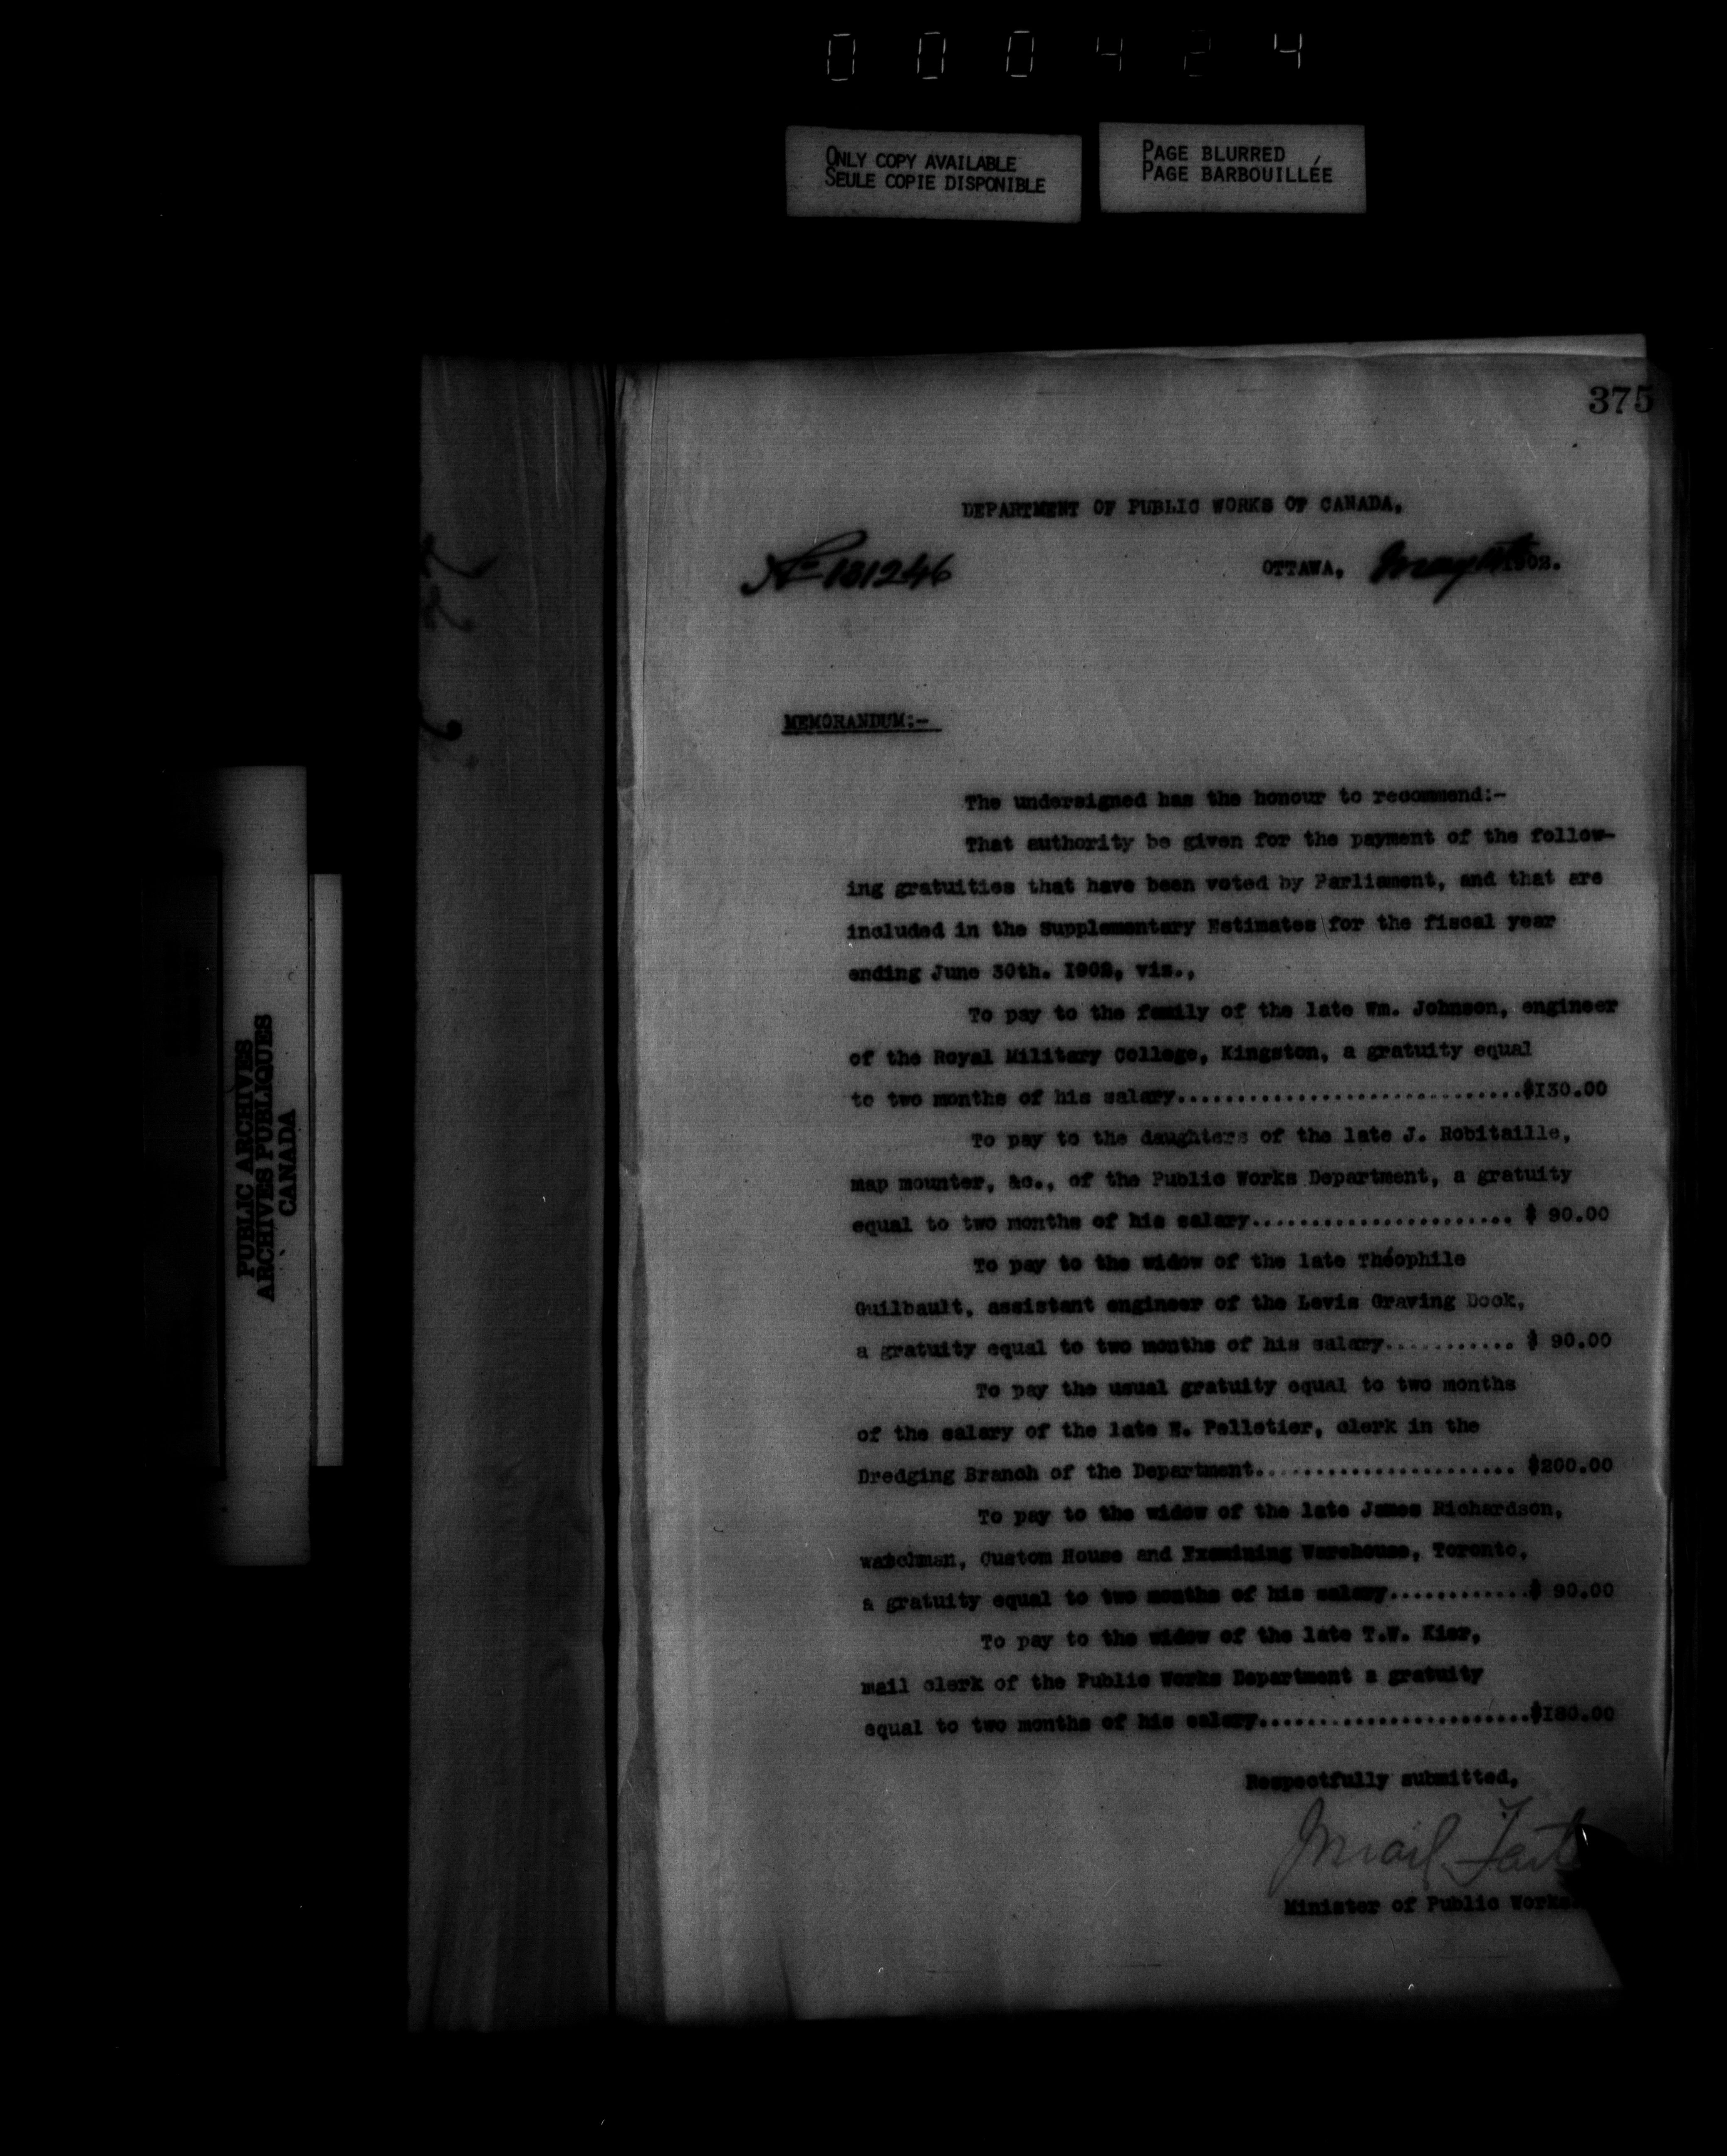 000424
ONLY COPY AVAILABLE
SEULE COPIE DISPONIBLE
PAGE BLURRED
PAGE BARBOUILLÉE
375
DEPARTMENT OF PUBLIC WORKS OF CANADA,
No 131246
OTTAWA, May 1902.
MEMORANDUM:-
The undersigned has the honour to recommend:-
That authority be given for the payment of the follow-
ing gratuities that have been voted by Parliament, and that are
included in the Supplementary Estimates for the fiscal year
ending June 30th. 1902, viz.,
To pay to the family of the late Wm. Johnson, engineer
of the Royal Military College, Kingston, a gratuity equal
to two months of his salary.............................$130.00
To pay to the daughters of the late J. Robitaille,
map mounter, &c., of the Public Works Department, a gratuity
equal to two months of his salary...................... $ 90.00
To pay to the widow of the late Théophile
Guilbault, assistant engineer of the Levis Graving Dock,
a gratuity equal to two months of his salary........... $ 90.00
To pay the usual gratuity equal to two months
of the salary of the late E. Pelletier, clerk in the
Dredging Branch of the Department...................... $200.00
To pay to the widow of the late James Richardson,
watchman, Custom House and Examining Warehouse, Toronto,
a gratuity equal to two months of his salary............$ 90.00
To pay to the widow of the late T.W. Kier,
mail clerk of the Public Works Department a gratuity
equal to two months of his salary.......................$180.00
Respectfully submitted,
Minister of Public Works.
PUBLIC ARCHIVES
ARCHIVES PUBLIQUES
CANADA